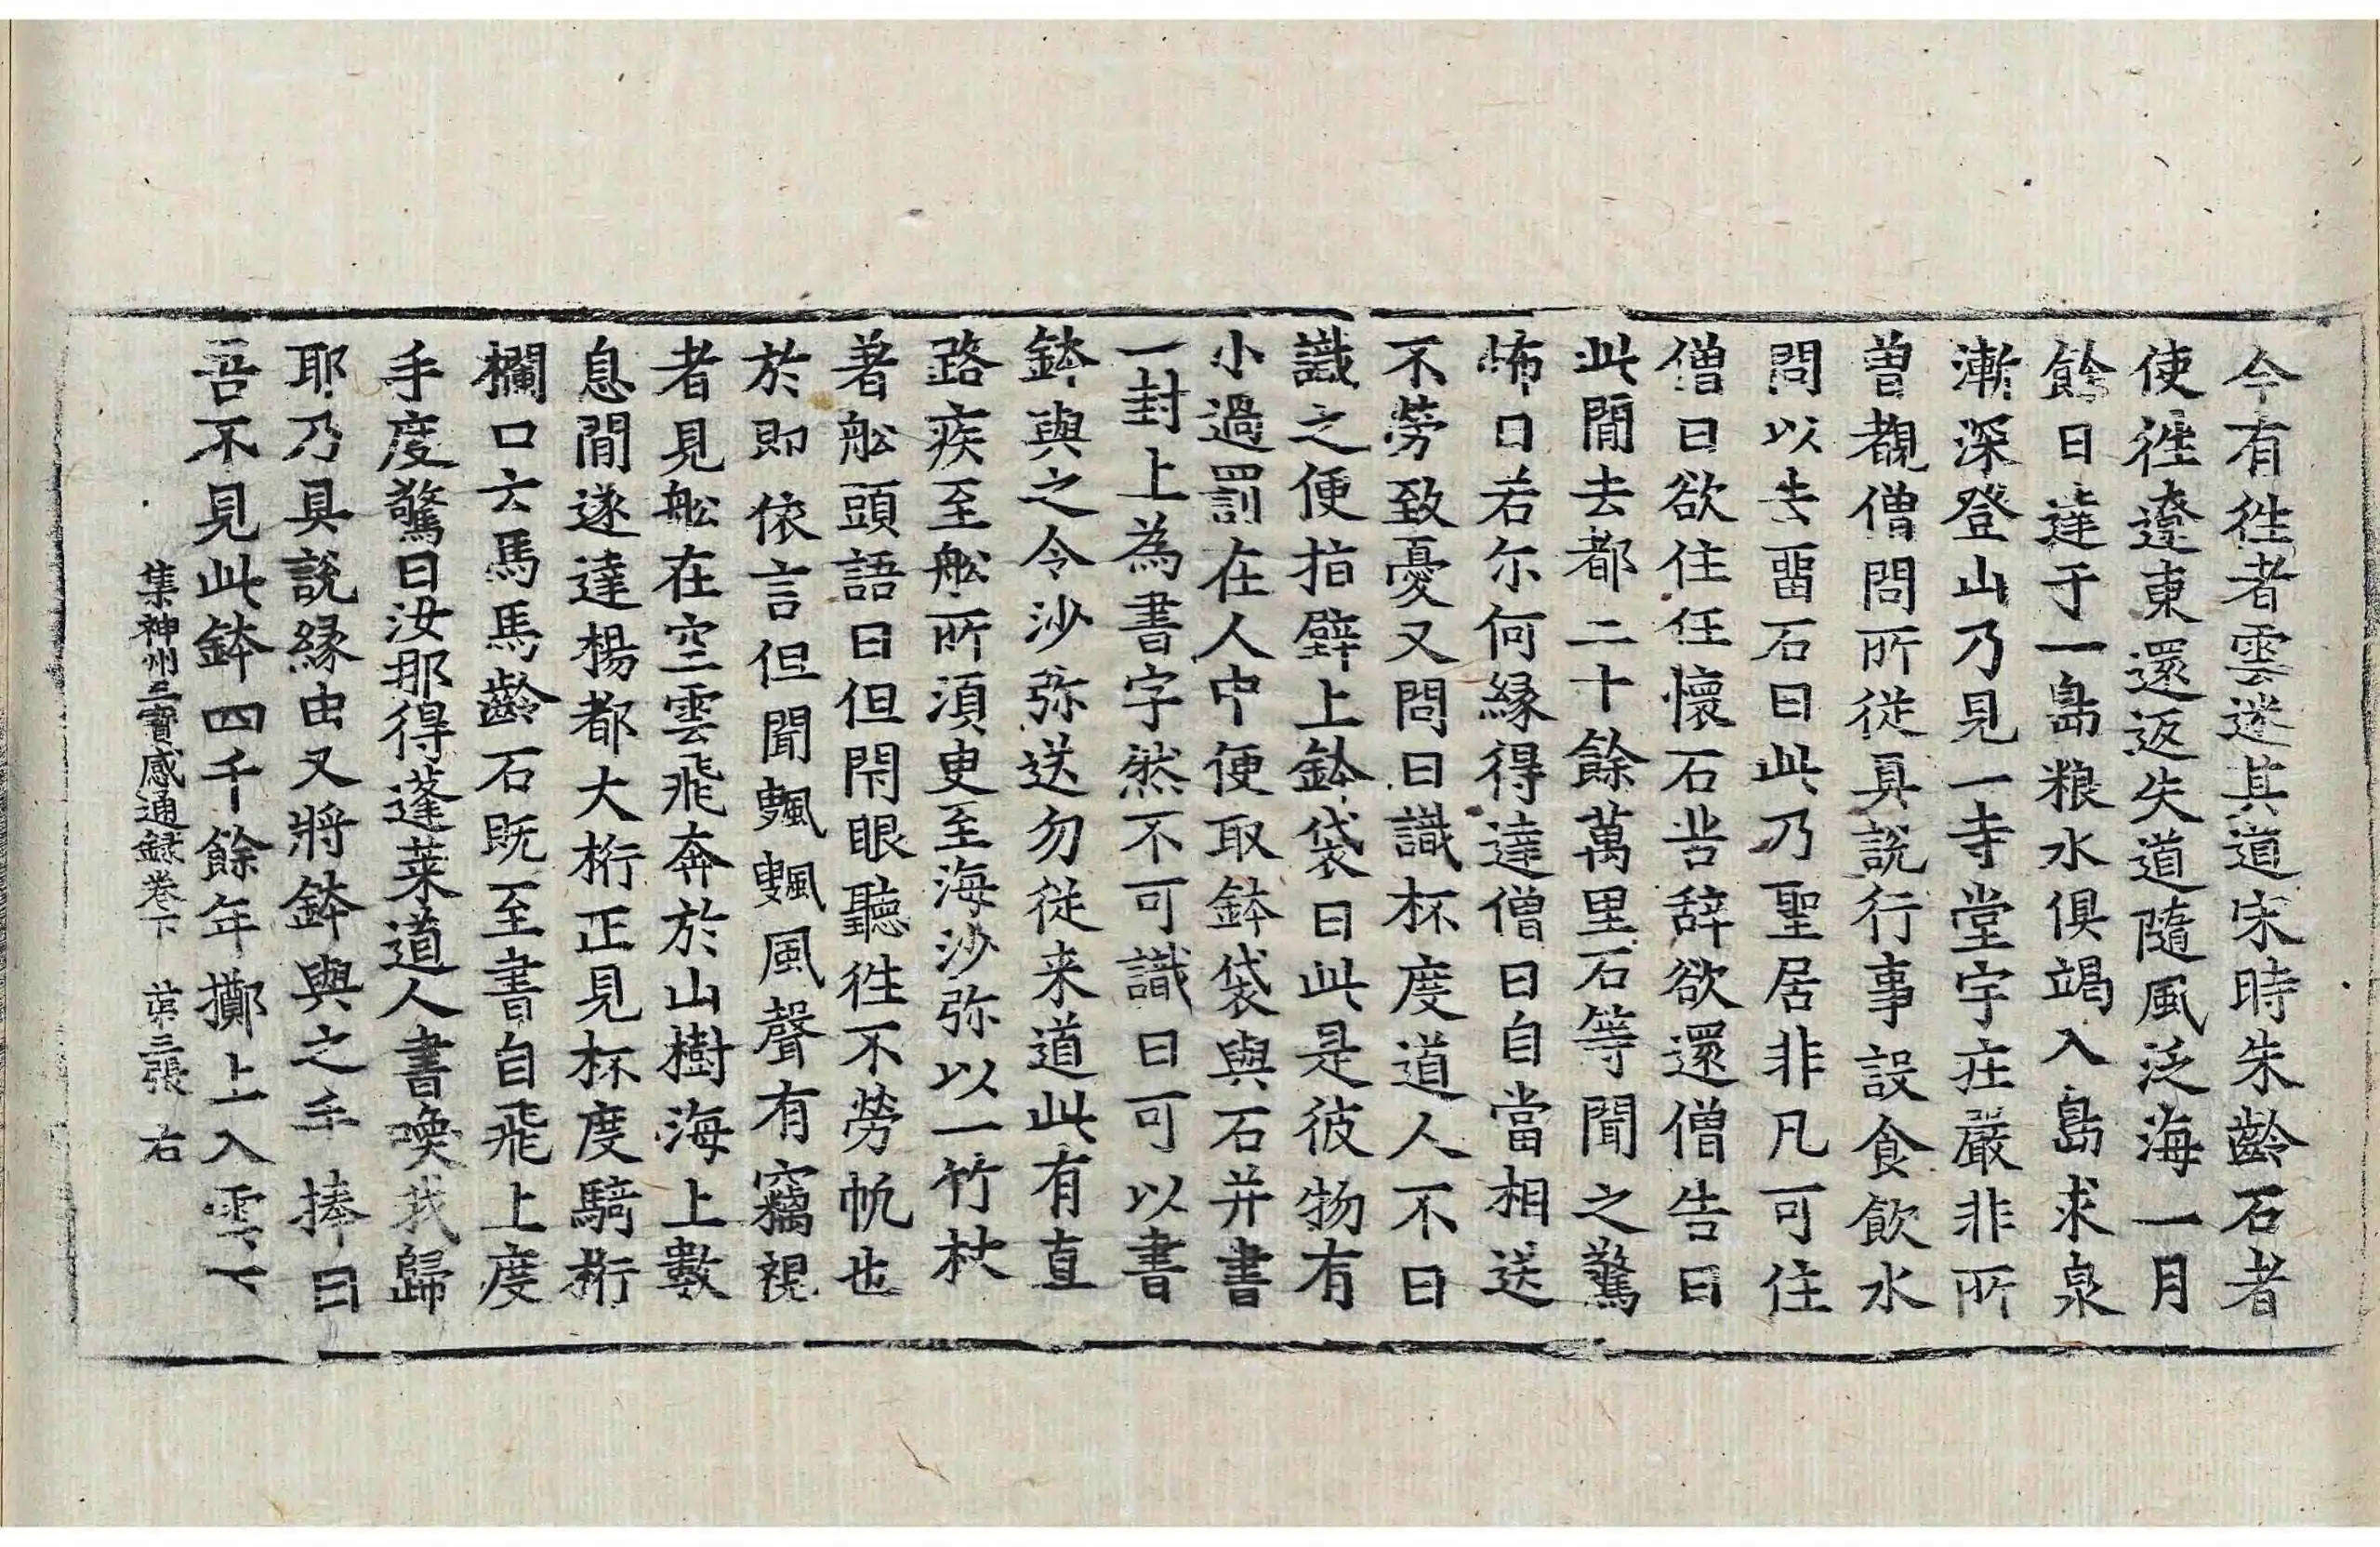 今有徃者雲迷其道宋時朱齡石者
使徃遼東還返失道隨風泛海一月
餘日達于一島粮水俱竭入島求泉
漸深登山乃見一寺堂宇庄嚴非所
曽覩僧問所從具說行事設食飲水
問以去畱石曰此乃聖居非凡可住
僧曰欲住任懷石告辞欲還僧告曰
此閒去都二十餘萬里石等聞之驚
怖曰若尓何縁得達僧曰自當相送
不勞致憂又問曰識杯度道人不曰
識之便指壁上鉢袋曰此是彼物有
小過罰在人中便取鉢袋與石并書
一封上為書字然不可識曰可以書
鉢與之令沙弥送勿從来道此有直
路疾至舩所須臾至海沙弥以一竹杖
著舩頭語曰但閇眼聽徃不勞帆也
於即依言但聞颽颽風聲有竊視
者見舩在空雲飛奔於山樹海上數
息閒遂達楊都大桁正見杯度騎桁
欄口云馬馬齡石既至書自飛上度
手度驚曰汝那得蓬莱道人書喚我歸
耶乃具說縁由又將鉢與之手捧曰
吾不見此鉢四千餘年擲上入雲下
集神州三寳感通録卷下　苐三張　右